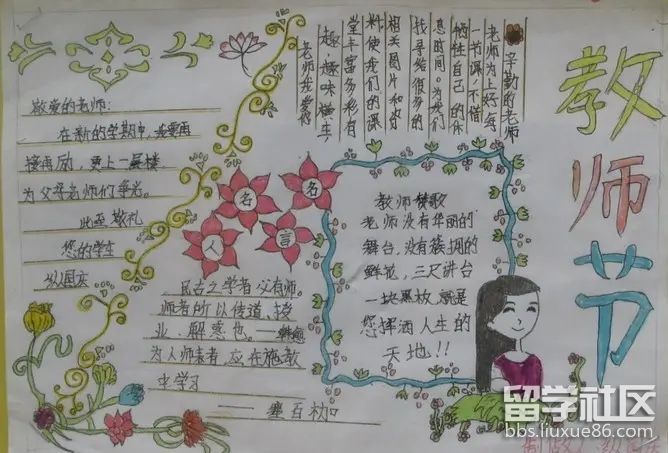 教师节
辛勤的老师
老师为上好每
一节课不惜
牺牲自己的休
息时间。为我们
找寻给很多的
相关图片和资
料,使我们的课
堂丰富多彩有
趣,趣味横生
老师我爱你
敬爱的老师:
在新的学期中,我要再
接再励,更上一层楼
为父母老师们争光。
此至敬礼
您的学生
名人名言
古之学者必有师。
师者所以传道,授
业、解惑也。——韩愈
为人师表者,应在施教
中学习
教师赞歌
老师没有华丽的
舞台,没有簇拥的
鲜花,三尺讲台
一块黑板,就是
您挥洒人生的
天地!!
留学社区
bbs.liuxue86.com